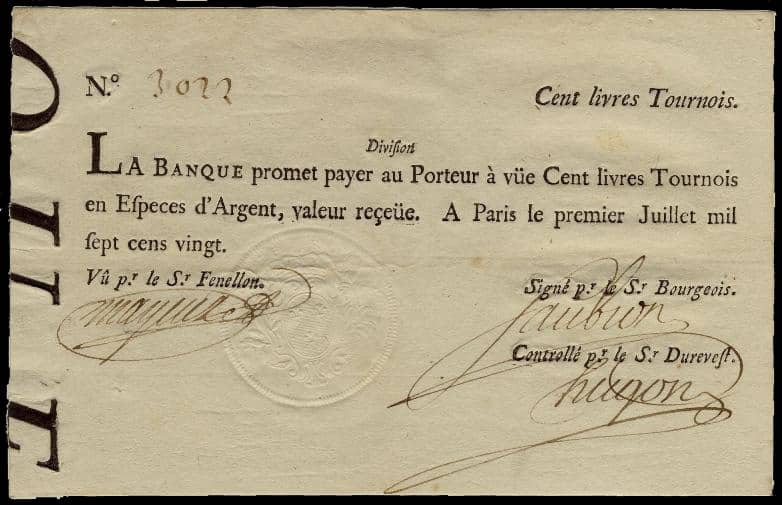 N.º 3022
Cent livres Tournois.
Division
LA BANQUE promet payer au Porteur à vüe Cent livres Tournois
en Eſpeces d'Argent, valeur reçeüe. A Paris le premier Juillet mil
ſept cens vingt.
Vû p.r le S.r Fenellon.
Signé p.r le S.r Bourgeois.
Controllé p.r le S.r Dureveſt.
hugon